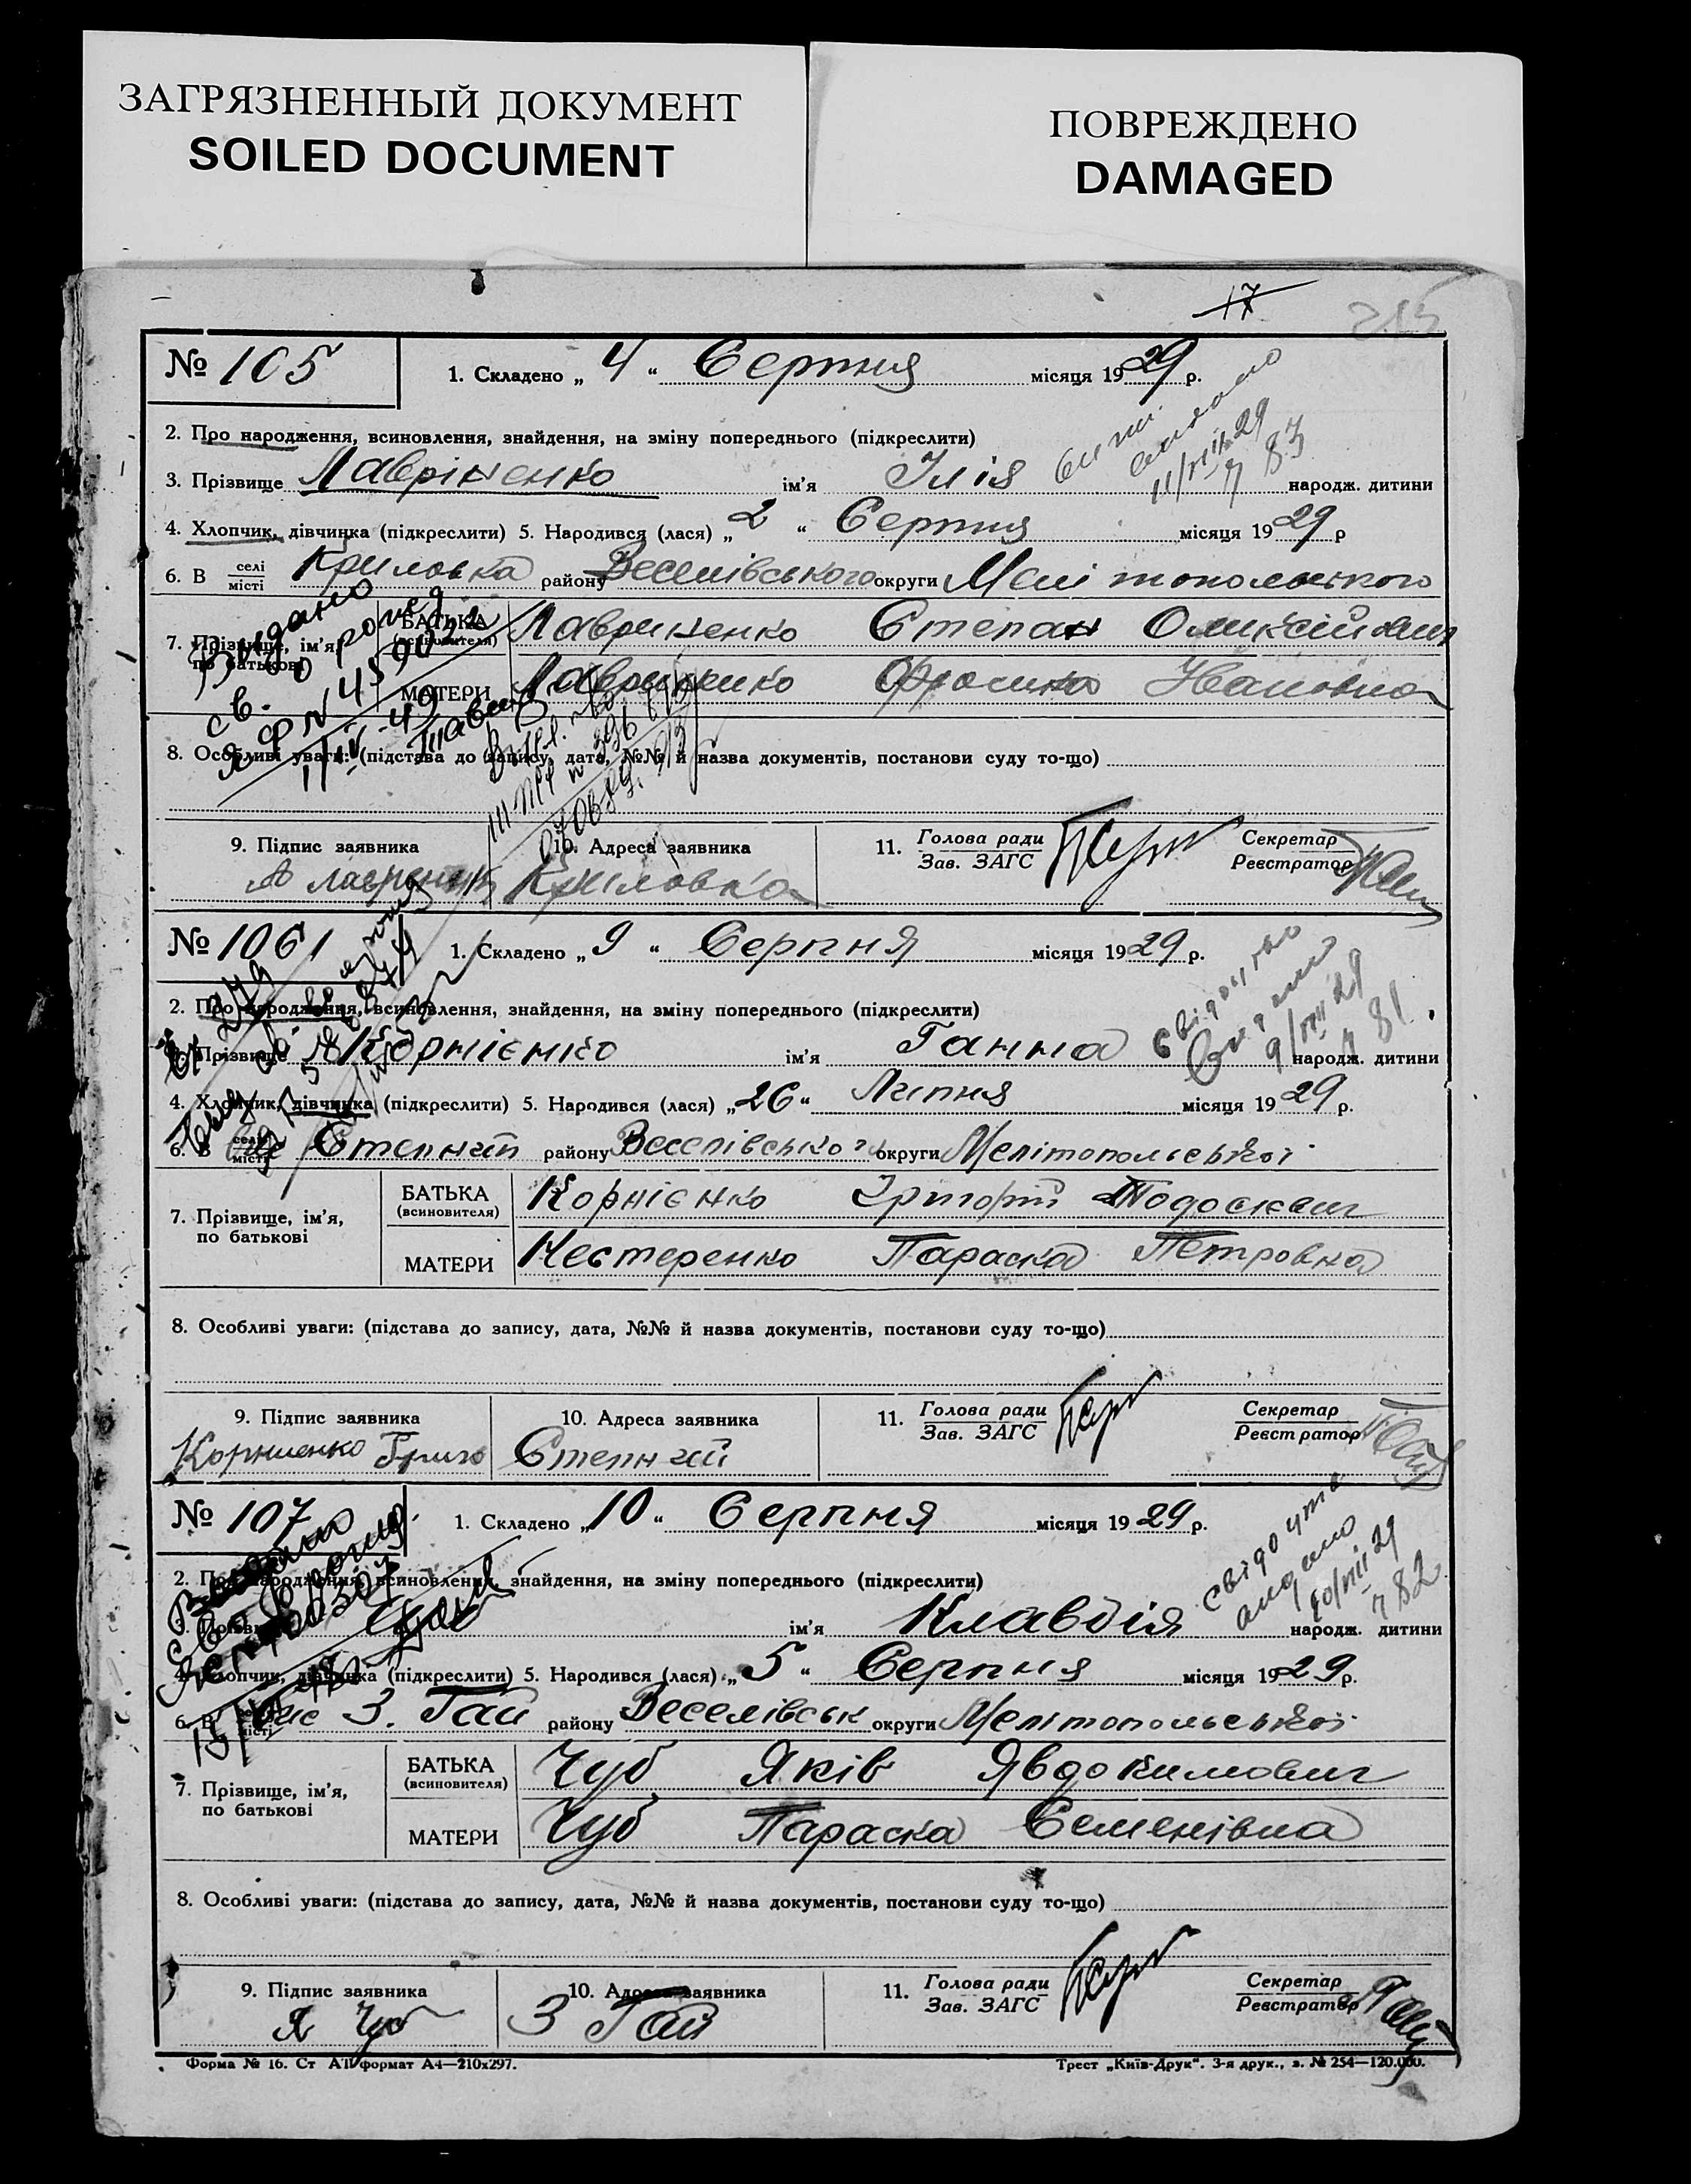 ЗАГРЯЗНЕННЫЙ ДОКУМЕНТ
SOILED DOCUMENT
ПОВРЕЖДЕНО
DAMAGED
17
№ 105
1. Складено „ 4 “ Серпня місяця 1929 р.
2. Про народження, всиновлення, знайдення, на зміну попереднього (підкреслити)
3. Прізвище Лавріненко ім’я Ілія народж. дитини
11/VIII 29
83
4. Хлопчик, дівчинка (підкреслити) 5. Народився (лася) „ 2 “ Серпня місяця 1929 р
6. В селі місті Криловка району Веселівського округи Мелітопольського
Видано
св. о рожд
7. Прізвище, ім’я, по батькові
БАТЬКА (всиновителя) Лавриненко Степан Оликсійович
МАТЕРИ Лавриненко Фросина Ивановна
8. Особливі уваги: (підстава до запису, дата, №№ й назва документів, постанови суду то-що)
9. Підпис заявника
10. Адреса заявника Криловка
11. Голова ради Зав. ЗАГС
Секретар Реєстратор
№ 106
1. Складено „ 9 “ Серпня місяця 1929 р.
2. Про народження, всиновлення, знайдення, на зміну попереднього (підкреслити)
3. Прізвище Корнієнко ім’я Ганна народж. дитини
9/VIII 29
81
4. Хлопчик, дівчинка (підкреслити) 5. Народився (лася) „ 26 “ Липня місяця 1929 р.
6. В селі місті Степний району Веселівського округи Мелітопольської
7. Прізвище, ім’я, по батькові
БАТЬКА (всиновителя) Корнієнко Григорій Тодосієвич
МАТЕРИ Нестеренко Параска Петровна
8. Особливі уваги: (підстава до запису, дата, №№ й назва документів, постанови суду то-що)
9. Підпис заявника Корниенко Григо
10. Адреса заявника Степний
11. Голова ради Зав. ЗАГС
Секретар Реєстратор
№ 107
1. Складено „ 10 “ Серпня місяця 1929 р.
2. Про народження, всиновлення, знайдення, на зміну попереднього (підкреслити)
3. Прізвище ім’я Клавдія народж. дитини
10/VIII 29
82
4. Хлопчик, дівчинка (підкреслити) 5. Народився (лася) „ 5 “ Серпня місяця 1929 р.
6. В селі місті З. Гай району Веселівськ округи Мелітопольської
7. Прізвище, ім’я, по батькові
БАТЬКА (всиновителя) Чуб Яків Явдокимович
МАТЕРИ Чуб Параска Семенівна
8. Особливі уваги: (підстава до запису, дата, №№ й назва документів, постанови суду то-що)
9. Підпис заявника Я Чуб
10. Адреса заявника З Гай
11. Голова ради Зав. ЗАГС
Секретар Реєстратор
Форма № 16. Ст АІІ формат А4—210x297.
Трест „Київ-Друк“. 3-я друк., з. № 254—120.000.